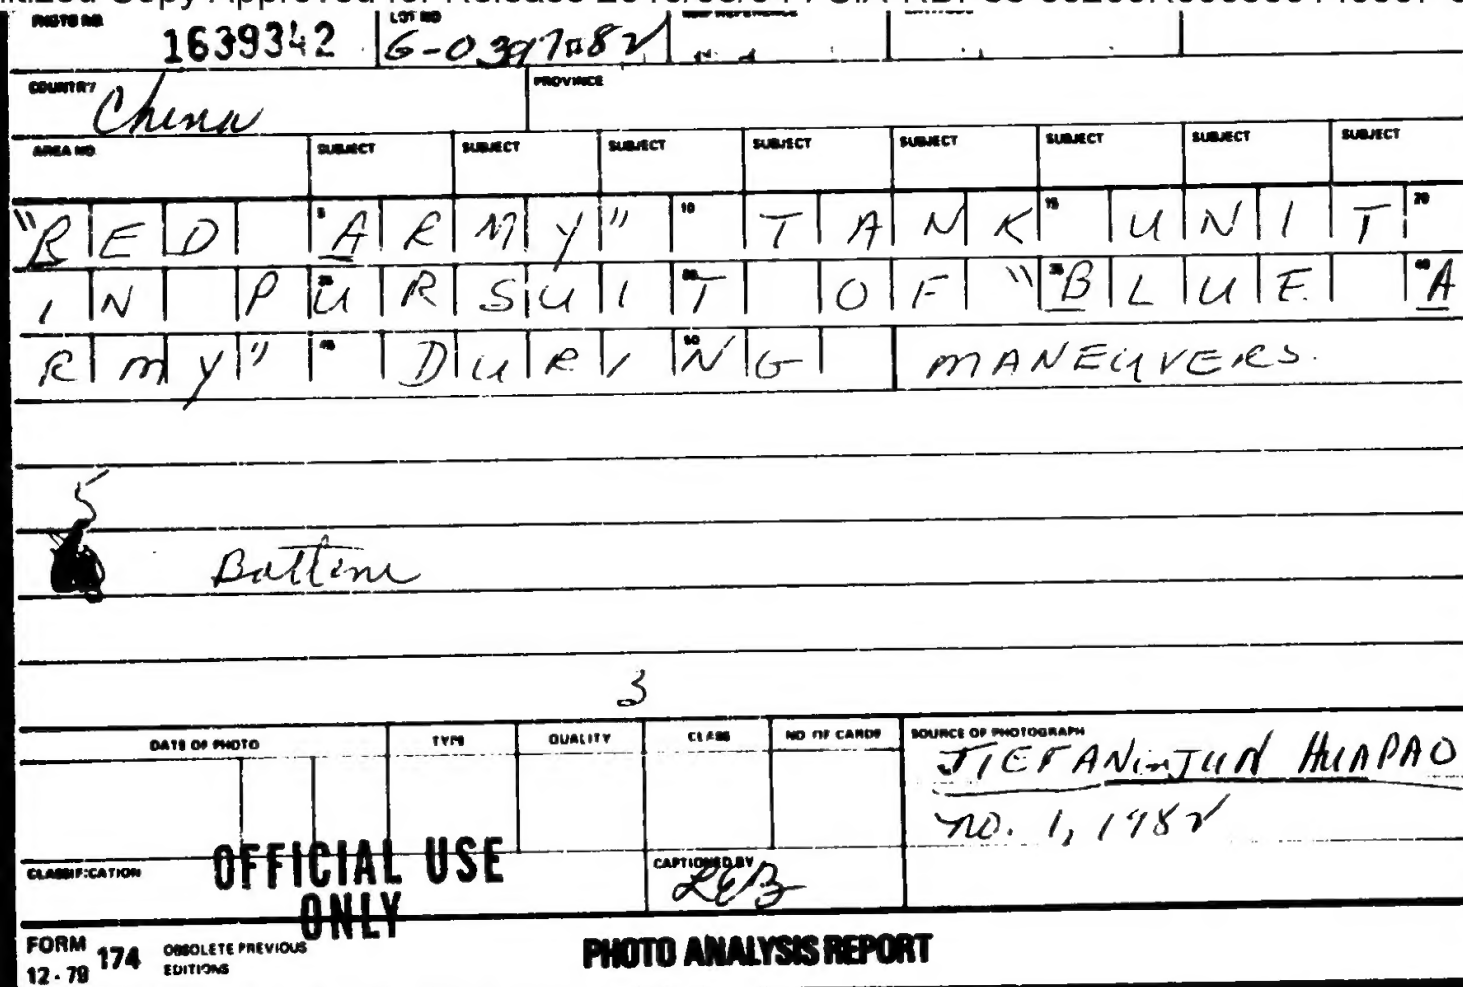 PHOTO NO. 1639342 LOT NO 6-0397-82
COUNTRY China PROVINCE
AREA NO. SUBJECT SUBJECT SUBJECT SUBJECT SUBJECT SUBJECT SUBJECT SUBJECT
"RED 5 ARMY" 10 TANK 15 UNIT 20
IN PURSUIT OF "BLUE A
RMY" DURING MANEUVERS.
5
Bottom
3
DATE OF PHOTO TYPE QUALITY CLASS NO OF CARDS SOURCE OF PHOTOGRAPH
JIEFANJUN HUAPAO
NO. 1, 1982
CLASSIFICATION OFFICIAL USE CAPTIONED BY LEB
ONLY
FORM 174 OBSOLETE PREVIOUS PHOTO ANALYSIS REPORT
12-79 EDITIONS